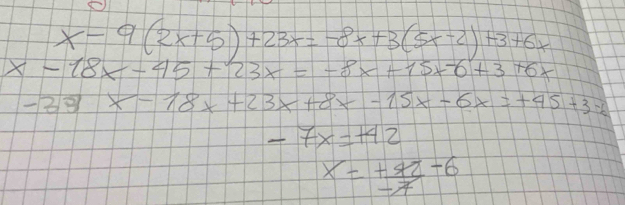 x - 9(2x+5)+23x = -8x+3(5x-2)+3+6x
x - 18x - 45 + 23x = -8x + 15x - 6 + 3 + 6x
x - 18x + 23x + 8x - 15x - 6x = +45 + 3 -
- 7x = +42
x = +42/-7 -6